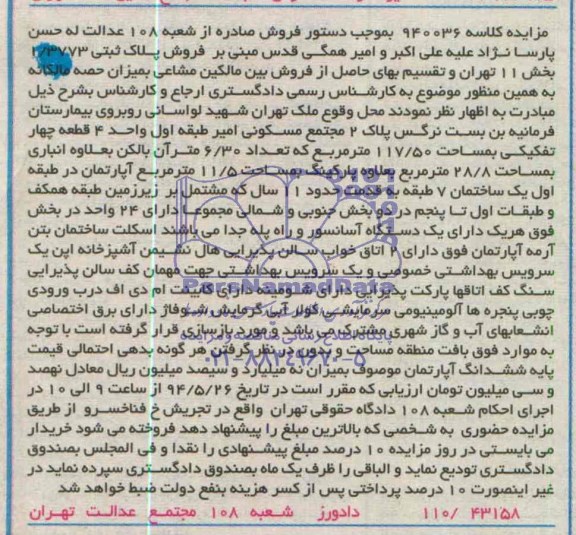 مزایده کلاسه ۹۴۰۰۳۶ بموجب دستور فروش صادره از شعبه ۱۰۸ عدالت له حسن
پارسا نژاد علیه علی اکبر و امیر همگی قدس مبنی بر فروش پلاک ثبتی ۲/۴۷۷۳
بخش ۱۱ تهران و تقسیم بهای حاصل از فروش بین مالکین مشاعی بمیزان حصه مالکانه
به همین منظور موضوع به کارشناس رسمی دادگستری ارجاع و کارشناس بشرح ذیل
مبادرت به اظهار نظر نمودند محل وقوع ملک تهران شهید لواسانی روبروی بیمارستان
فرمانیه بن بست نرگس پلاک ۲ مجتمع مسکونی امیر طبقه اول واحد ۴ قطعه چهار
تفکیکی بمساحت ۱۱۷/۵۰ مترمربع که تعداد ۶/۳۰ مترآن بالکن بعلاوه انباری
بمساحت ۲۸/۸ مترمربع بعلاوه پارکینگ بمساحت ۱۱/۵ مترمربع آپارتمان در طبقه
اول یک ساختمان ۷ طبقه به قدمت حدود ۱۱ سال که مشتمل بر زیرزمین طبقه همکف
و طبقات اول تا پنجم در دو بخش جنوبی و شمالی مجموعا دارای ۲۴ واحد در بخش
فوق هریک دارای یک دستگاه آسانسور و راه پله جدا می باشند اسکلت ساختمان بتن
آرمه آپارتمان فوق دارای ۲ اتاق خواب سالن پذیرایی هال نشیمن آشپزخانه اپن یک
سرویس بهداشتی خصوصی و یک سرویس بهداشتی جهت مهمان کف سالن پذیرایی
سنگ کف اتاقها پارکت پذیرایی دارای شومینه دارای کابینت ام دی اف درب ورودی
چوبی پنجره ها آلومینیومی سرمایشی کولر آبی گرمایش شوفاژ دارای برق اختصاصی
انشعابهای آب و گاز شهری مشترک می باشد و مورد بازسازی قرار گرفته است با توجه
به موارد فوق بافت منطقه مساحت و بدون در نظر گرفتن هر گونه بدهی احتمالی قیمت
پایه ششدانگ آپارتمان موصوف بمیزان نه میلیارد و سیصد میلیون ریال معادل نهصد
و سی میلیون تومان ارزیابی که مقرر است در تاریخ ۹۴/۵/۲۶ از ساعت ۹ الی ۱۰ در
اجرای احکام شعبه ۱۰۸ دادگاه حقوقی تهران واقع در تجریش خ فناخسرو از طریق
مزایده حضوری به شخصی که بالاترین مبلغ را پیشنهاد دهد فروخته می شود خریدار
می بایستی در روز مزایده ۱۰ درصد مبلغ پیشنهادی را نقدا و فی المجلس بصندوق
دادگستری تودیع نماید و الباقی را ظرف یک ماه بصندوق دادگستری سپرده نماید در
غیر اینصورت ۱۰ درصد پرداختی پس از کسر هزینه بنفع دولت ضبط خواهد شد
۱۱۰/ ۴۳۱۵۸ دادورز شعبه ۱۰۸ مجتمع عدالت تهران
ParsNamadData
پایگاه اطلاع رسانی مناقصه و مزایده
۰۲۱-۸۸۳۴۹۶۷۰-۵